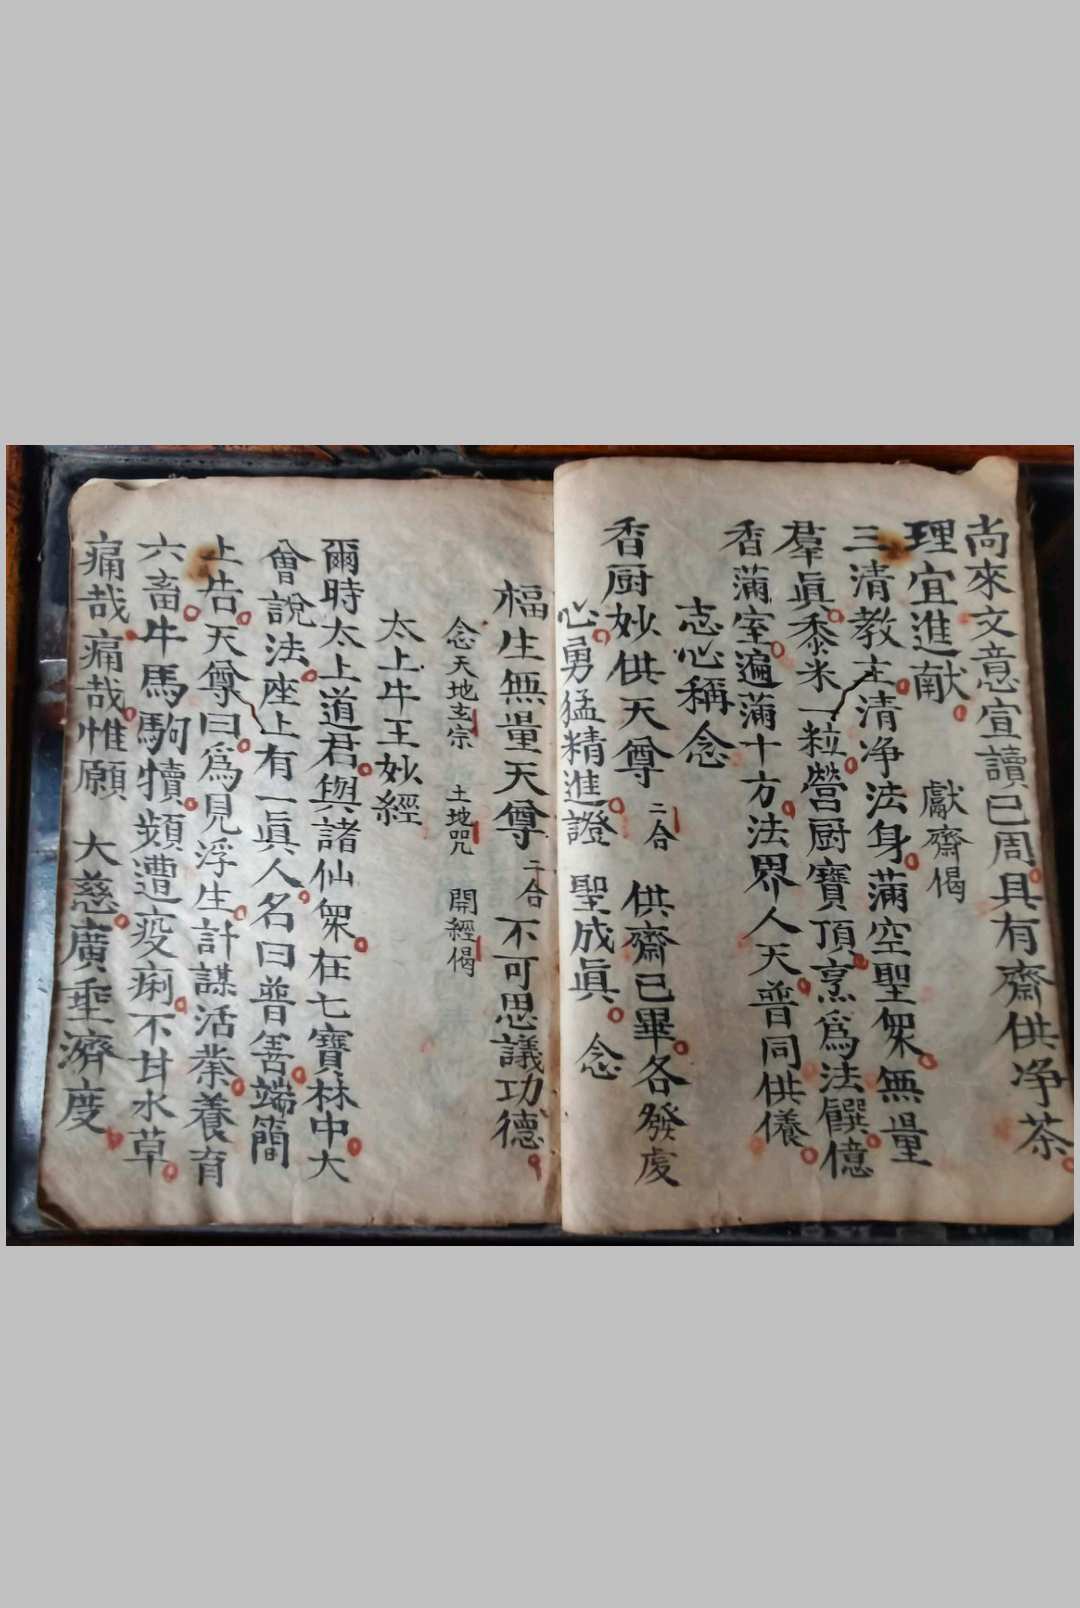 尚來文意宣讀已周具有齋供净茶
理宜進献 獻齋偈
三清教主清净法身蒲空聖衆無量
羣眞黍米一粒營厨寶頂烹爲法饌億
香蒲室遍蒲十方法界人天普同供養
志心稱念
香厨妙供天尊 二合 供齋已畢各發虔
心勇猛精進證 聖成眞 念
福生無量天尊 二合 不可思議功德
念天地玄宗 土地咒 開經偈
太上牛王妙經
爾時太上道君與諸仙衆在七寶林中大
會說法座上有一眞人名曰普善端簡
上告天尊曰爲見浮生計謀活業養育
六畜牛馬駒犢頻遭疫痢不甘水草
痛哉痛哉惟願 大慈廣垂濟度